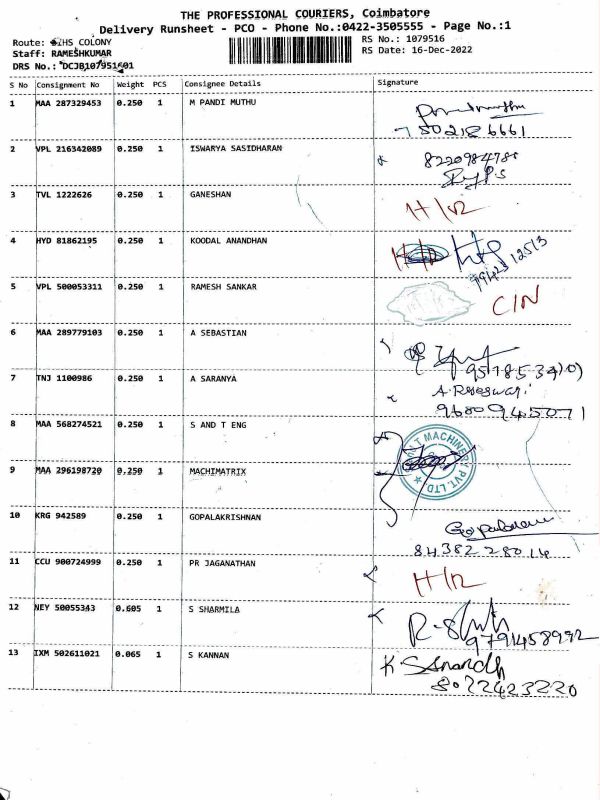 THE PROFESSIONAL COURIERS, Coimbatore
Delivery Runsheet - PCO - Phone No.:0422-3505555 - Page No.:1
Route: SIHS COLONY
RS No.: 1079516
Staff: RAMESHKUMAR
RS Date: 16-Dec-2022
DRS No.: DCJB107951601
S No Consignment No Weight PCS Consignee Details Signature
1 MAA 287329453 0.250 1 M PANDI MUTHU
7502186661
2 VPL 216342089 0.250 1 ISWARYA SASIDHARAN
3 TVL 1222626 0.250 1 GANESHAN
4 HYD 81862195 0.250 1 KOODAL ANANDHAN
5 VPL 500053311 0.250 1 RAMESH SANKAR
6 MAA 289779103 0.250 1 A SEBASTIAN
7 TNJ 1100986 0.250 1 A SARANYA
9680945071
8 MAA 568274521 0.250 1 S AND T ENG
MACHINERY PVT. LTD.
9 MAA 296198720 0.250 1 MACHIMATRIX
10 KRG 942589 0.250 1 GOPALAKRISHNAN
8438228014
11 CCU 900724999 0.250 1 PR JAGANATHAN
12 NEY 50055343 0.605 1 S SHARMILA
9791458992
13 IXM 502611021 0.065 1 S KANNAN
8022423220